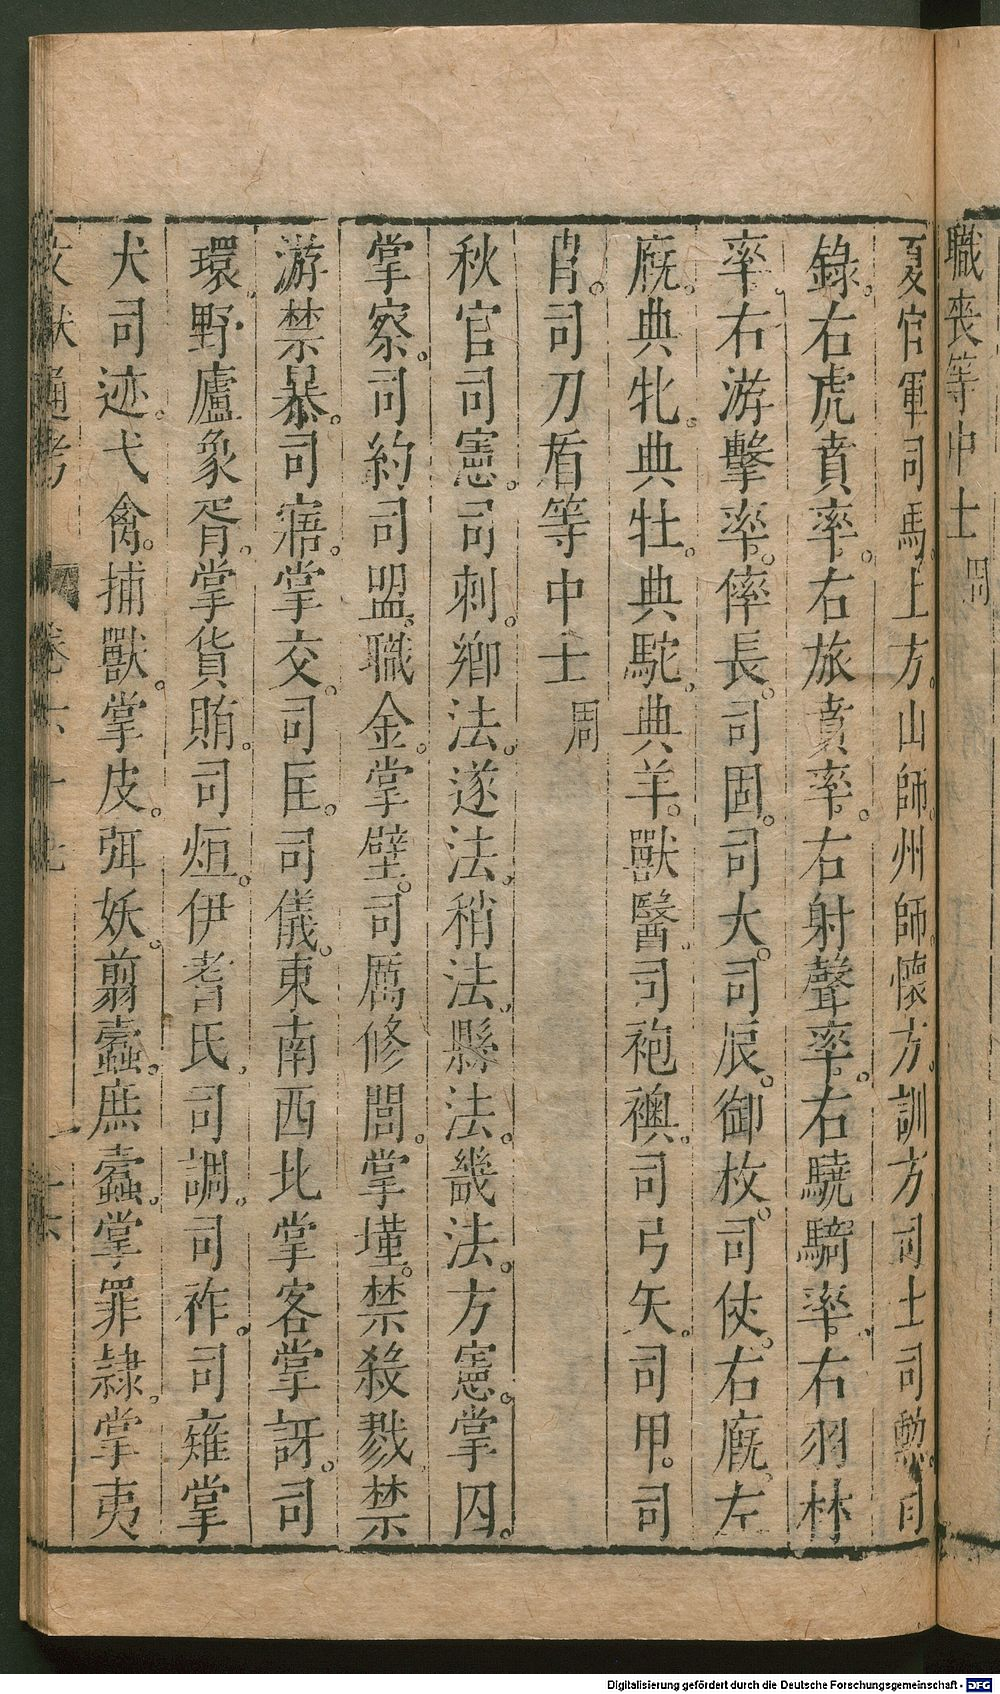 職喪等中士 周
夏官軍司馬上方山師州師懷方訓方司士司勳司
錄右虎賁率右旅賁率右射聲率右驍騎率右羽林
率右游擊率倅長司固司大司辰御枚司仗右廐左
廐典牝典牡典駝典羊獸醫司袍襖司弓矢司甲司
肖司刀盾等中士 周
秋官司憲司刺鄉法遂法稍法縣法畿法方憲掌囚
掌察司約司盟職金掌璧司厲修閭掌墐禁殺戮禁
游禁暴司寤掌交司匡司儀東南西北掌客掌訝司
環野廬象胥掌貨賄司烜伊耆氏司調司祚司雉掌
犬司迹弋禽捕獸掌皮弭妖翦蠹庶蠱掌罪隸掌夷
文獻通考 卷六十七 十六
Digitalisierung gefördert durch die Deutsche Forschungsgemeinschaft - DFG